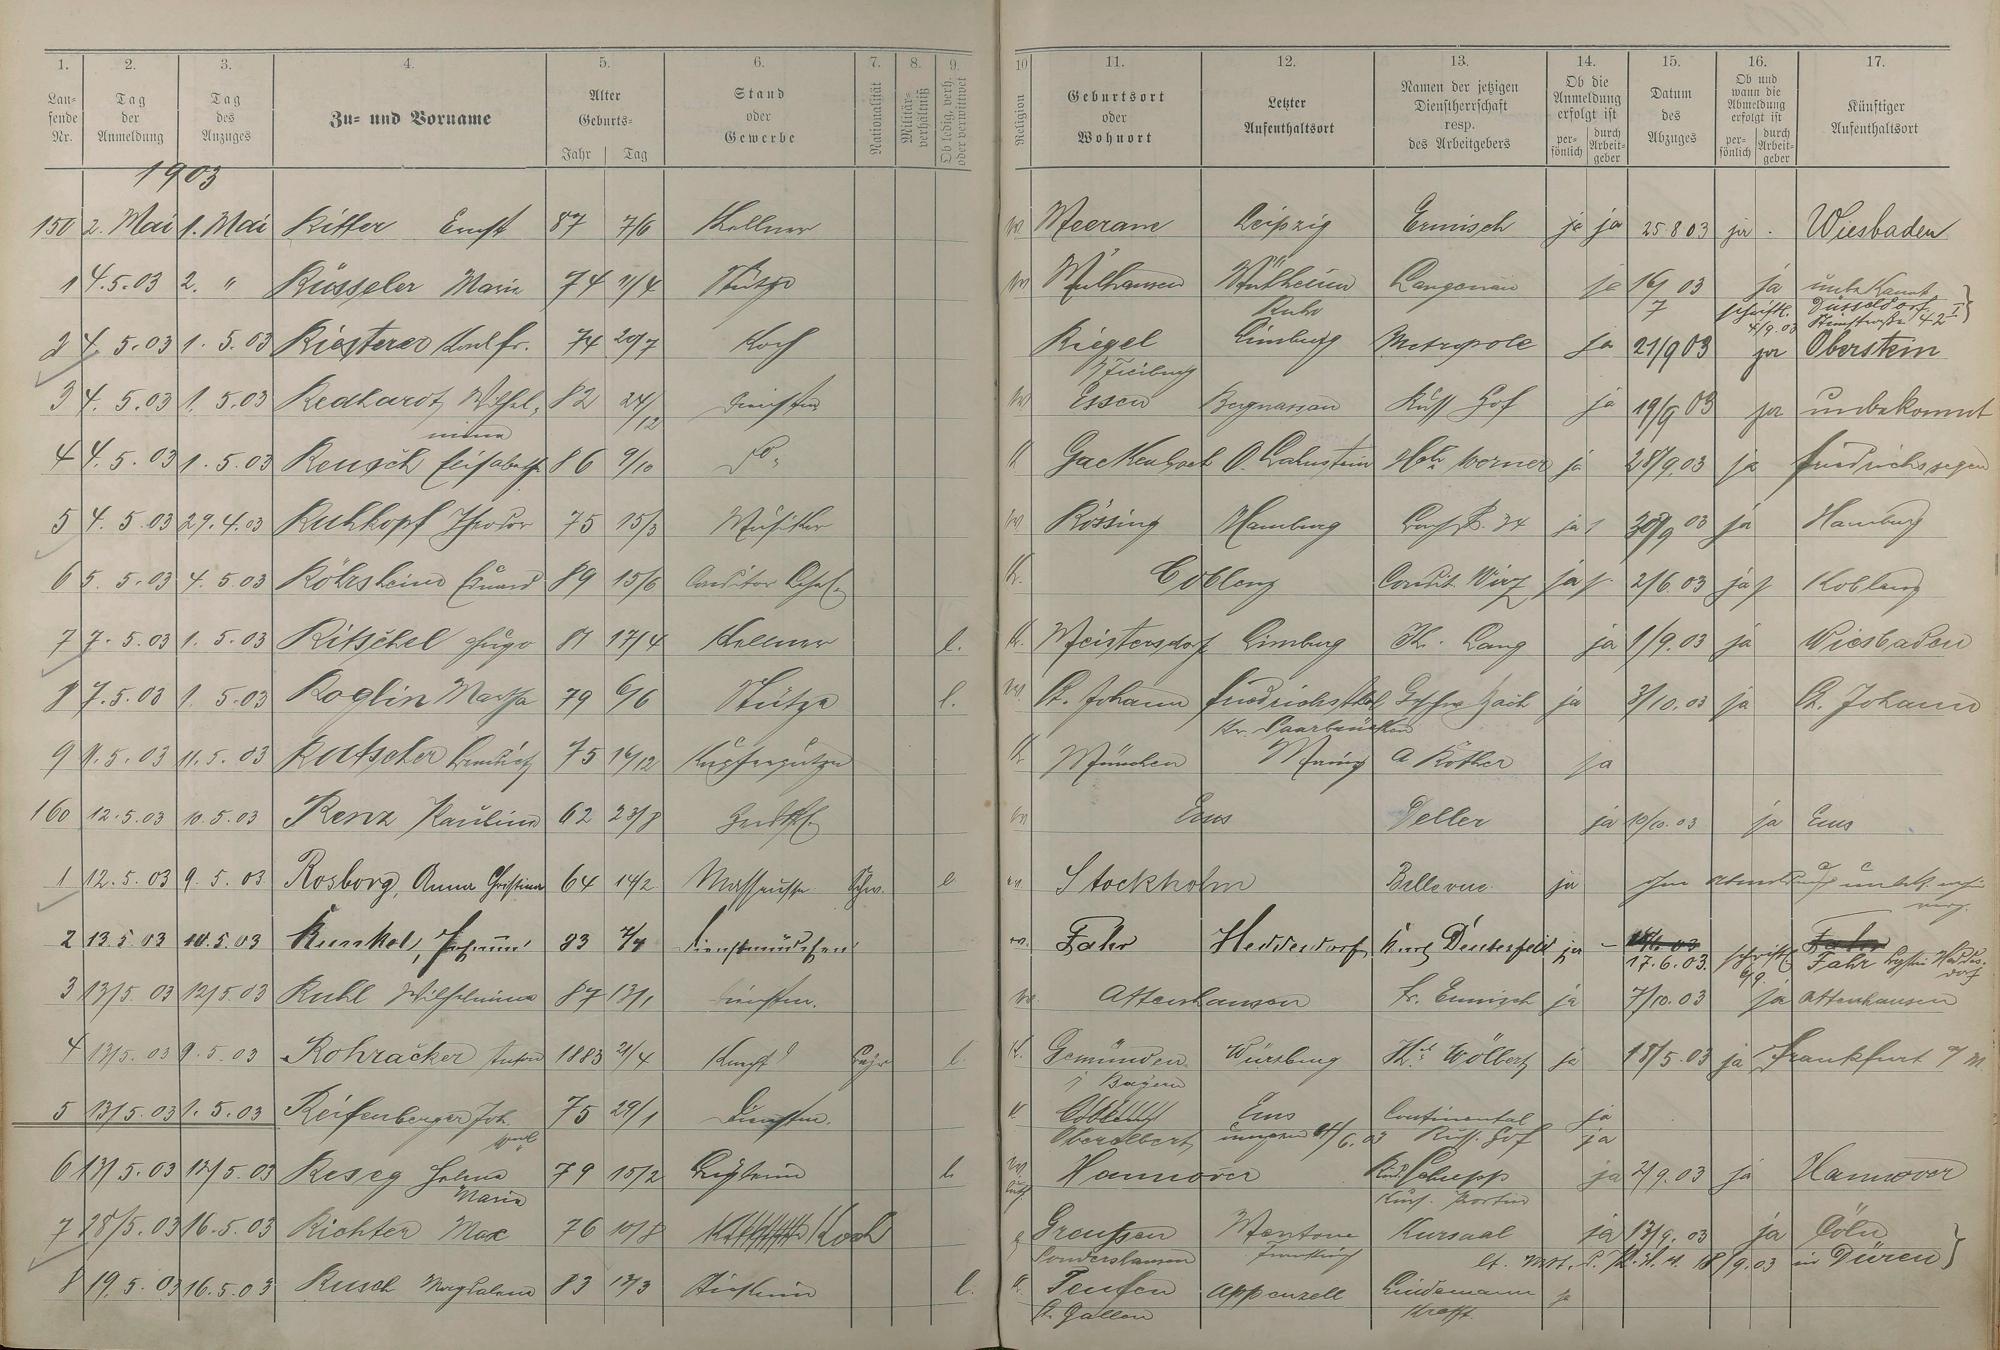 1. 2. 3. 4. 5. 6. 7. 8. 9. 10 11. 12. 13. 14. 15. 16. 17.
Lau-fende Nr. Tag der Anmeldung Tag des Anzuges Zu- und Vorname Alter Geburts- Jahr Tag Stand oder Gewerbe Nationalität Militär-verhältniß Ob ledig, verh. oder verwittwet Religion Geburtsort oder Wohnort Letzter Aufenthaltsort Namen der jetzigen Dienstherrschaft resp. des Arbeitgebers Ob die Anmeldung erfolgt ist per-sönlich durch Arbeit-geber Datum des Abzuges Ob und wann die Abmeldung erfolgt ist per-sönlich durch Arbeit-geber Künftiger Aufenthaltsort
1903
150 2. Mai 1. Mai Ritter Ernst 87 7/6 Kellner Meerane Leipzig Ermisch ja ja 25 8 03 ja . Wiesbaden
1 4.5.03 2. " Rüsseler Maria 74 11/4 Stütze Mülhausen Mülheim Langenau ja 16/ 03 ja unbekannt
Ruhr 7 schriftl. 4/9.03 Düsseldorf Steinstraße 42 I
2 4. 5.03 1. 5.03 Riesterer Karl fr. 74 20/7 Koch Riegel Limburg Metropole ja 21/9 03 ja Oberstein
b/Freiburg
3 4. 5.03 1. 5.03 Redhardt, Wilhel- 82 24/12 Dienstm Essen Bergnassau Russ Hof ja 19/9 03 ja unbekannt
mina
4 4. 5.03 1. 5.03 Reusch Elisabeth 86 9/10 Do. K Gackenbach O. Lahnstein Werner ja 28/9.03 ja Friedrichssegen
5 4. 5.03 29.4.03 Ruhkopf Theodor 75 15/3 Musiker Rössing Hamburg 34 ja 1 30/9 03 ja Hamburg
6 5. 5.03 4. 5.03 Röhrsheim Eduard 89 15/6 Conditor K. Coblenz Condit. ja 2/6.03 ja Koblenz
7 7. 5.03 1. 5.03 Ritschel Hugo 81 17/4 Kellner l. K. Meistersdorf Limburg Lang ja 1/9.03 ja Wiesbaden
8 7.5.03 1. 5.03 Roglin Martha 79 6/6 Stütze l. St. Johann Friedrichsthal ja 3/10.03 ja St. Johann
Kr. Saarbrücken
9 11.5.03 11.5.03 Rutscher Benedict 75 16/12 Kupferputzer K München Mainz A Röther ja
160 12.5.03 10.5.03 Renz Paulina 62 23/8 Ems Veller ja 10/10.03 ja Ems
1 12.5.03 9.5.03 Rosborg, Anna Christina 64 14/2 Masseuse Schw. l ev. Stockholm Bellevue ja ohne Abmeldung
2 13.5.03 10.5.03 Runkel, 83 7/4 Dienstmädchen ev. Fahr Heddesdorf Deuterfeld ja – 17.6.03. schriftl. 6/9 Fahr
3 13/5.03 12/5.03 Ruhl Wilhelmina 87 13/1 Dienstm. Attenhausen Fr. Ermisch ja 7/10.03 ja Attenhausen
4 13/5.03 9.5.03 Rohracker Anton 1883 21/4 Bayr l. K. Gemünden Würzburg Wölbert ja 18/5.03 ja Frankfurt a/M.
i Bayern
5 13/5.03 1.5.03 Reifenberger Joh. 75 29/1 Dienstm. K Coblenz Ems Continental ja
Oberelbert 4/6.03 Russ. Hof ja
6 13/5.03 12/5.03 Reseg Helma 79 15/2 l. Hannover Schupp ja 2/9.03 ja Hannover
Maria
7 28/5.03 16.5.03 Richter Max 76 10/8 Koch Greussen Mentone Kursaal ja 13/9.03 ja Cöln
Sondershausen 18/9.03 in Düren
8 19.5.03 16.5.03 Rusch Magdalena 83 13/3 l. K. Teufen Appenzell Lindemann ja
St. Gallen